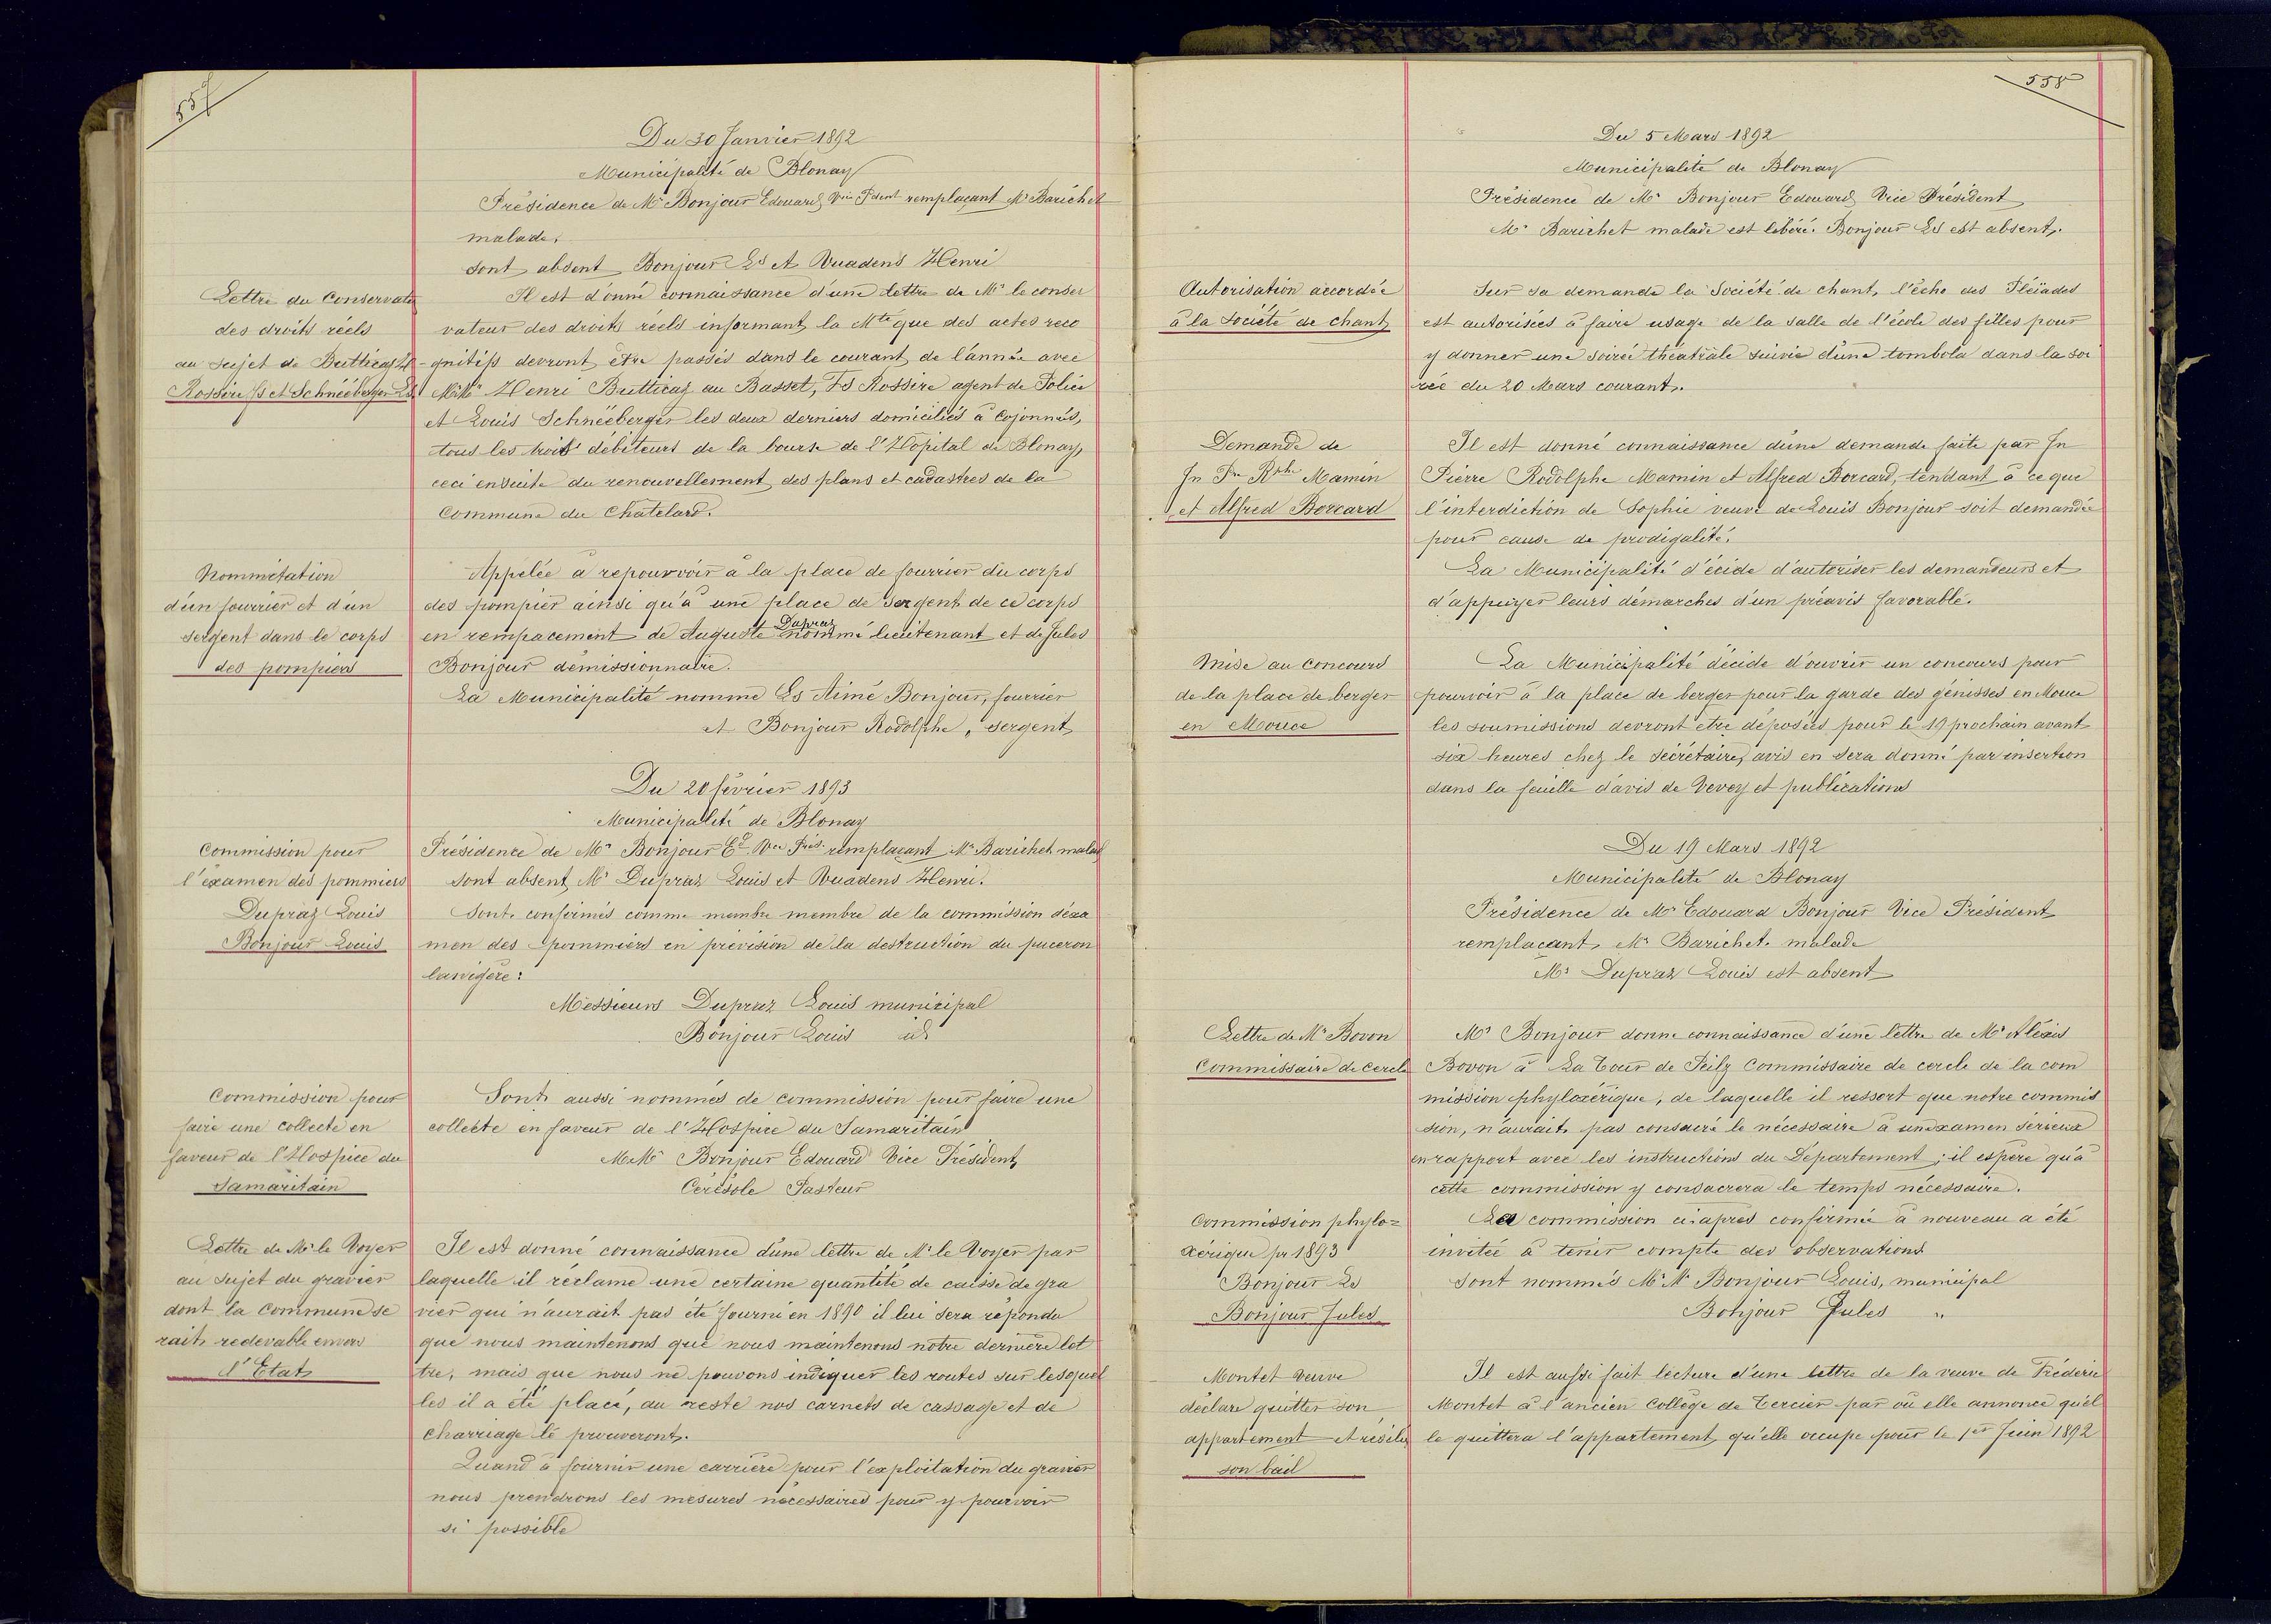 557
Du 30 Janvier 1892
Municipalité de Blonay
Présidence de Mr Bonjour Edouard Vice Pdent remplaçant Mr Barichet
malade.
sont absent Bonjour Ls et Vuadens Henri
Lettre du Conservateur
des droits réels
au sujet de Butticaz H
Rossire fs et Schnéeberger Ls
Il est donné connaissance d'une lettre de Mr le conser
vateur des droits réels informant la Mté que des actes reco
gnitifs devront être passés dans le courant de l'année avec
MrMr Henri Butticaz au Basset, Fs Rossire agent de Police
et Louis Schnéeberger les deux derniers domiciliés à Cojonnex,
tous les trois débiteurs de la bourse de l'Hopital de Blonay,
ceci ensuite du renouvellement des plans et cadastres de la
Commune du Châtelard.
Nommétation
d'un fourrier et d'un
sergent dans le corps
des pompiers
Appelée à repourvoir à la place de fourrier du corps
des pompier ainsi qu'à une place de sergent de ce corps
en rempacement de Auguste Dupraz nommé lieutenant et de Jules
Bonjour démissionnaire.
La Municipalité nomme Ls Aimé Bonjour, fourrier
et Bonjour Rodolphe, sergent
Du 20 février 1893
Municipalité de Blonay
Présidence de Mr Bonjour Ed Vice Prés. remplaçant Mr Barichet malad
sont absent Mr Dupraz Louis et Vuadens Henri.
Commission pour
l'examen des pommiers
Dupraz Louis
Bonjour Louis
Sont confirmés comme membre membre de la commission d'exa
men des pommiers en prévision de la destruction du puceron
lanigère:
Messieurs Dupraz Louis municipal
Bonjour Louis id
Commission pour
faire une collecte en
faveur de l'Hospice du
Samaritain
Sont aussi nommés de commission pour faire une
collecte en faveur de l'Hospice du Samaritain
MrMr Bonjour Edouard Vice Président
Cérésole Pasteur
Lettre de Mr le Voyer
au sujet du gravier
dont la Commune se
rait redevable envers
l'Etat
Il est donné connaissance d'une lettre de Mr le Voyer par
laquelle il réclame une certaine quantité de caisse de gra
vier qui n'aurait pas été fourni en 1890 il lui sera répondu
que nous maintenons que nous maintenons notre dernière let
tre, mais que nous ne pouvons indiquer les routes sur lesquel
les il a été placé, au reste nos carnets de cassage et de
charriage le prouveront.
Quand à fournir une carrière pour l'exploitation du gravier
nous prendrons les mesures nécessaires pour y pourvoir
si possible
558
Du 5 Mars 1892
Municipalité de Blonay
Présidence de Mr Bonjour Edouard Vice Président
Mr Barichet malade est libéré. Bonjour Ls est absent.
Autorisation accordée
à la société de chant
Sur sa demande la Société de chant, l'écho des Pléiades
est autorisées à faire usage de la salle de l'école des filles pour
y donner une soirée théatrale suivie d'une tombola dans la soi
rée du 20 Mars courant.
Demande de
Jn Pre Rphe Mamin
et Alfred Borcard
Il est donné connaissance d'une demande faite par Jn
Pierre Rodolphe Mamin et Alfred Borcard, tendant à ce que
l'interdiction de Sophie veuve de Louis Bonjour soit demandée
pour cause de prodigalité.
La Municipalité décide d'autoriser les demandeurs et
d'appuyer leurs démarches d'un préavis favorable.
Mise au concours
de la place de berger
en Mouce
La Municipalité décide d'ouvrir un concours pour
pourvoir à la place de berger pour la garde des génisses en Mouce
les soumissions devront etre déposées pour le 19 prochain avant
six heures chez le secrétaire, avis en sera donné par insertion
dans la feuille d'avis de Vevey et publications
Du 19 Mars 1892
Municipalité de Blonay
Présidence de Mr Edouard Bonjour Vice Président
remplaçant Mr Barichet malade
Mr Dupraz Louis est absent
Lettre de Mr Bovon
Commissaire de cercle
Mr Bonjour donne connaissance d'une lettre de Mr Aléxis
Bovon à La Tour de Peilz Commissaire de cercle de la com
mission phyloxérique, de laquelle il ressort que notre commis
sion, n'aurait pas consacré le nécessaire à un examen sérieux
en rapport avec les instructions du Département; il espère qu'à
cette commission y consacrera le temps nécessaire.
Commission phylo=
xérique pr 1893
Bonjour Ls
Bonjour Jules
La commission ci-après confirmée à nouveau a été
invitée à tenir compte des observations
Sont nommés Mr Mr Bonjour Louis, municipal
Bonjour Jules "
Montet veuve
déclare quitter son
appartement et résilie
son bail
Il est aussi fait lecture d'une lettre de la veuve de Fréderic
Montet à l'ancien Collège de Tercier par où elle annonce qu'el
le quittera l'appartement qu'elle occupe pour le 1er Juin 1892